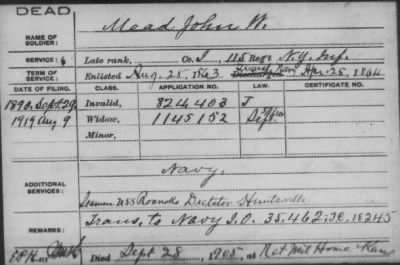 DEAD
NAME OF SOLDIER: Mead, John W.
SERVICE: Late rank, Co. I, 115 Reg't N.Y. Inf.
TERM OF SERVICE: Enlisted Aug. 25, 1863 Navy Apr. 25, 1864
DATE OF FILING. CLASS. APPLICATION NO. LAW. CERTIFICATE NO.
1890, Sept. 29 Invalid, 824403 J
1919 Aug 9 Widow, 1145152 Sept.
Minor,
ADDITIONAL SERVICES: Navy.
Seaman USS Roanoke Dictator Huntsville
REMARKS: Trans. to Navy I.O. 35,462; I.C. 18245
Died Sept 28, 1905, at Nat Mil Home Kans